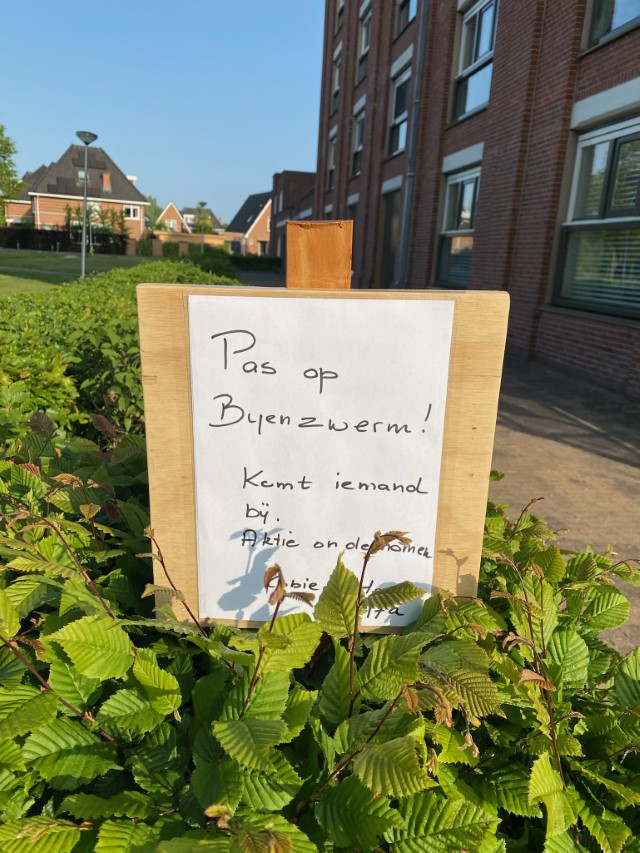 Pas op
Byenzwerm!
Komt iemand
bij.
Aktie ondernomen